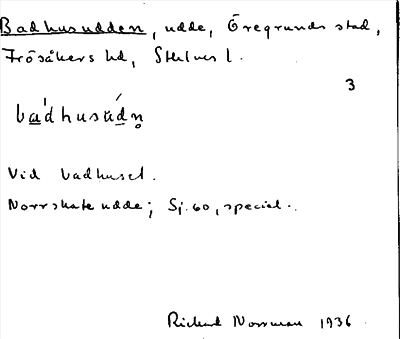 Badhusudden, udde, Öregrunds stad,
Frösåkers hd, Sthlms l.
3
badhusùdn̥
Vid badhuset.
Norrskate udde; Sj. 60, special.
Richard Norrman 1936